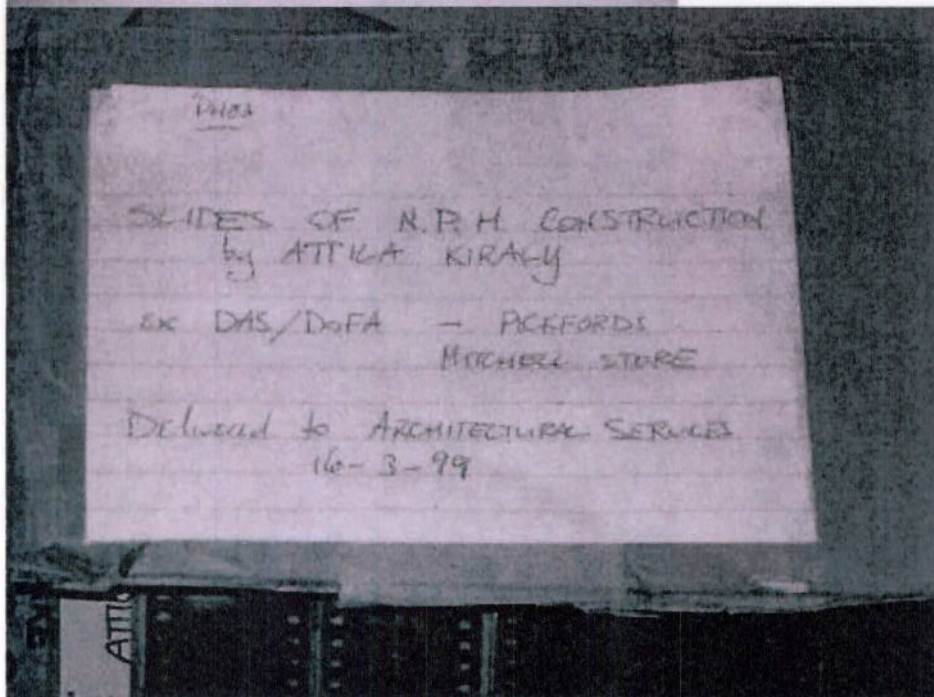 SLIDES OF N.P.H. CONSTRUCTION
by ATTILA KIRALY
ex DAS/DOFA - PICKFORDS
MITCHELL STORE
Delivered to ARCHITECTURAL SERVICES
16-3-99
ATTI